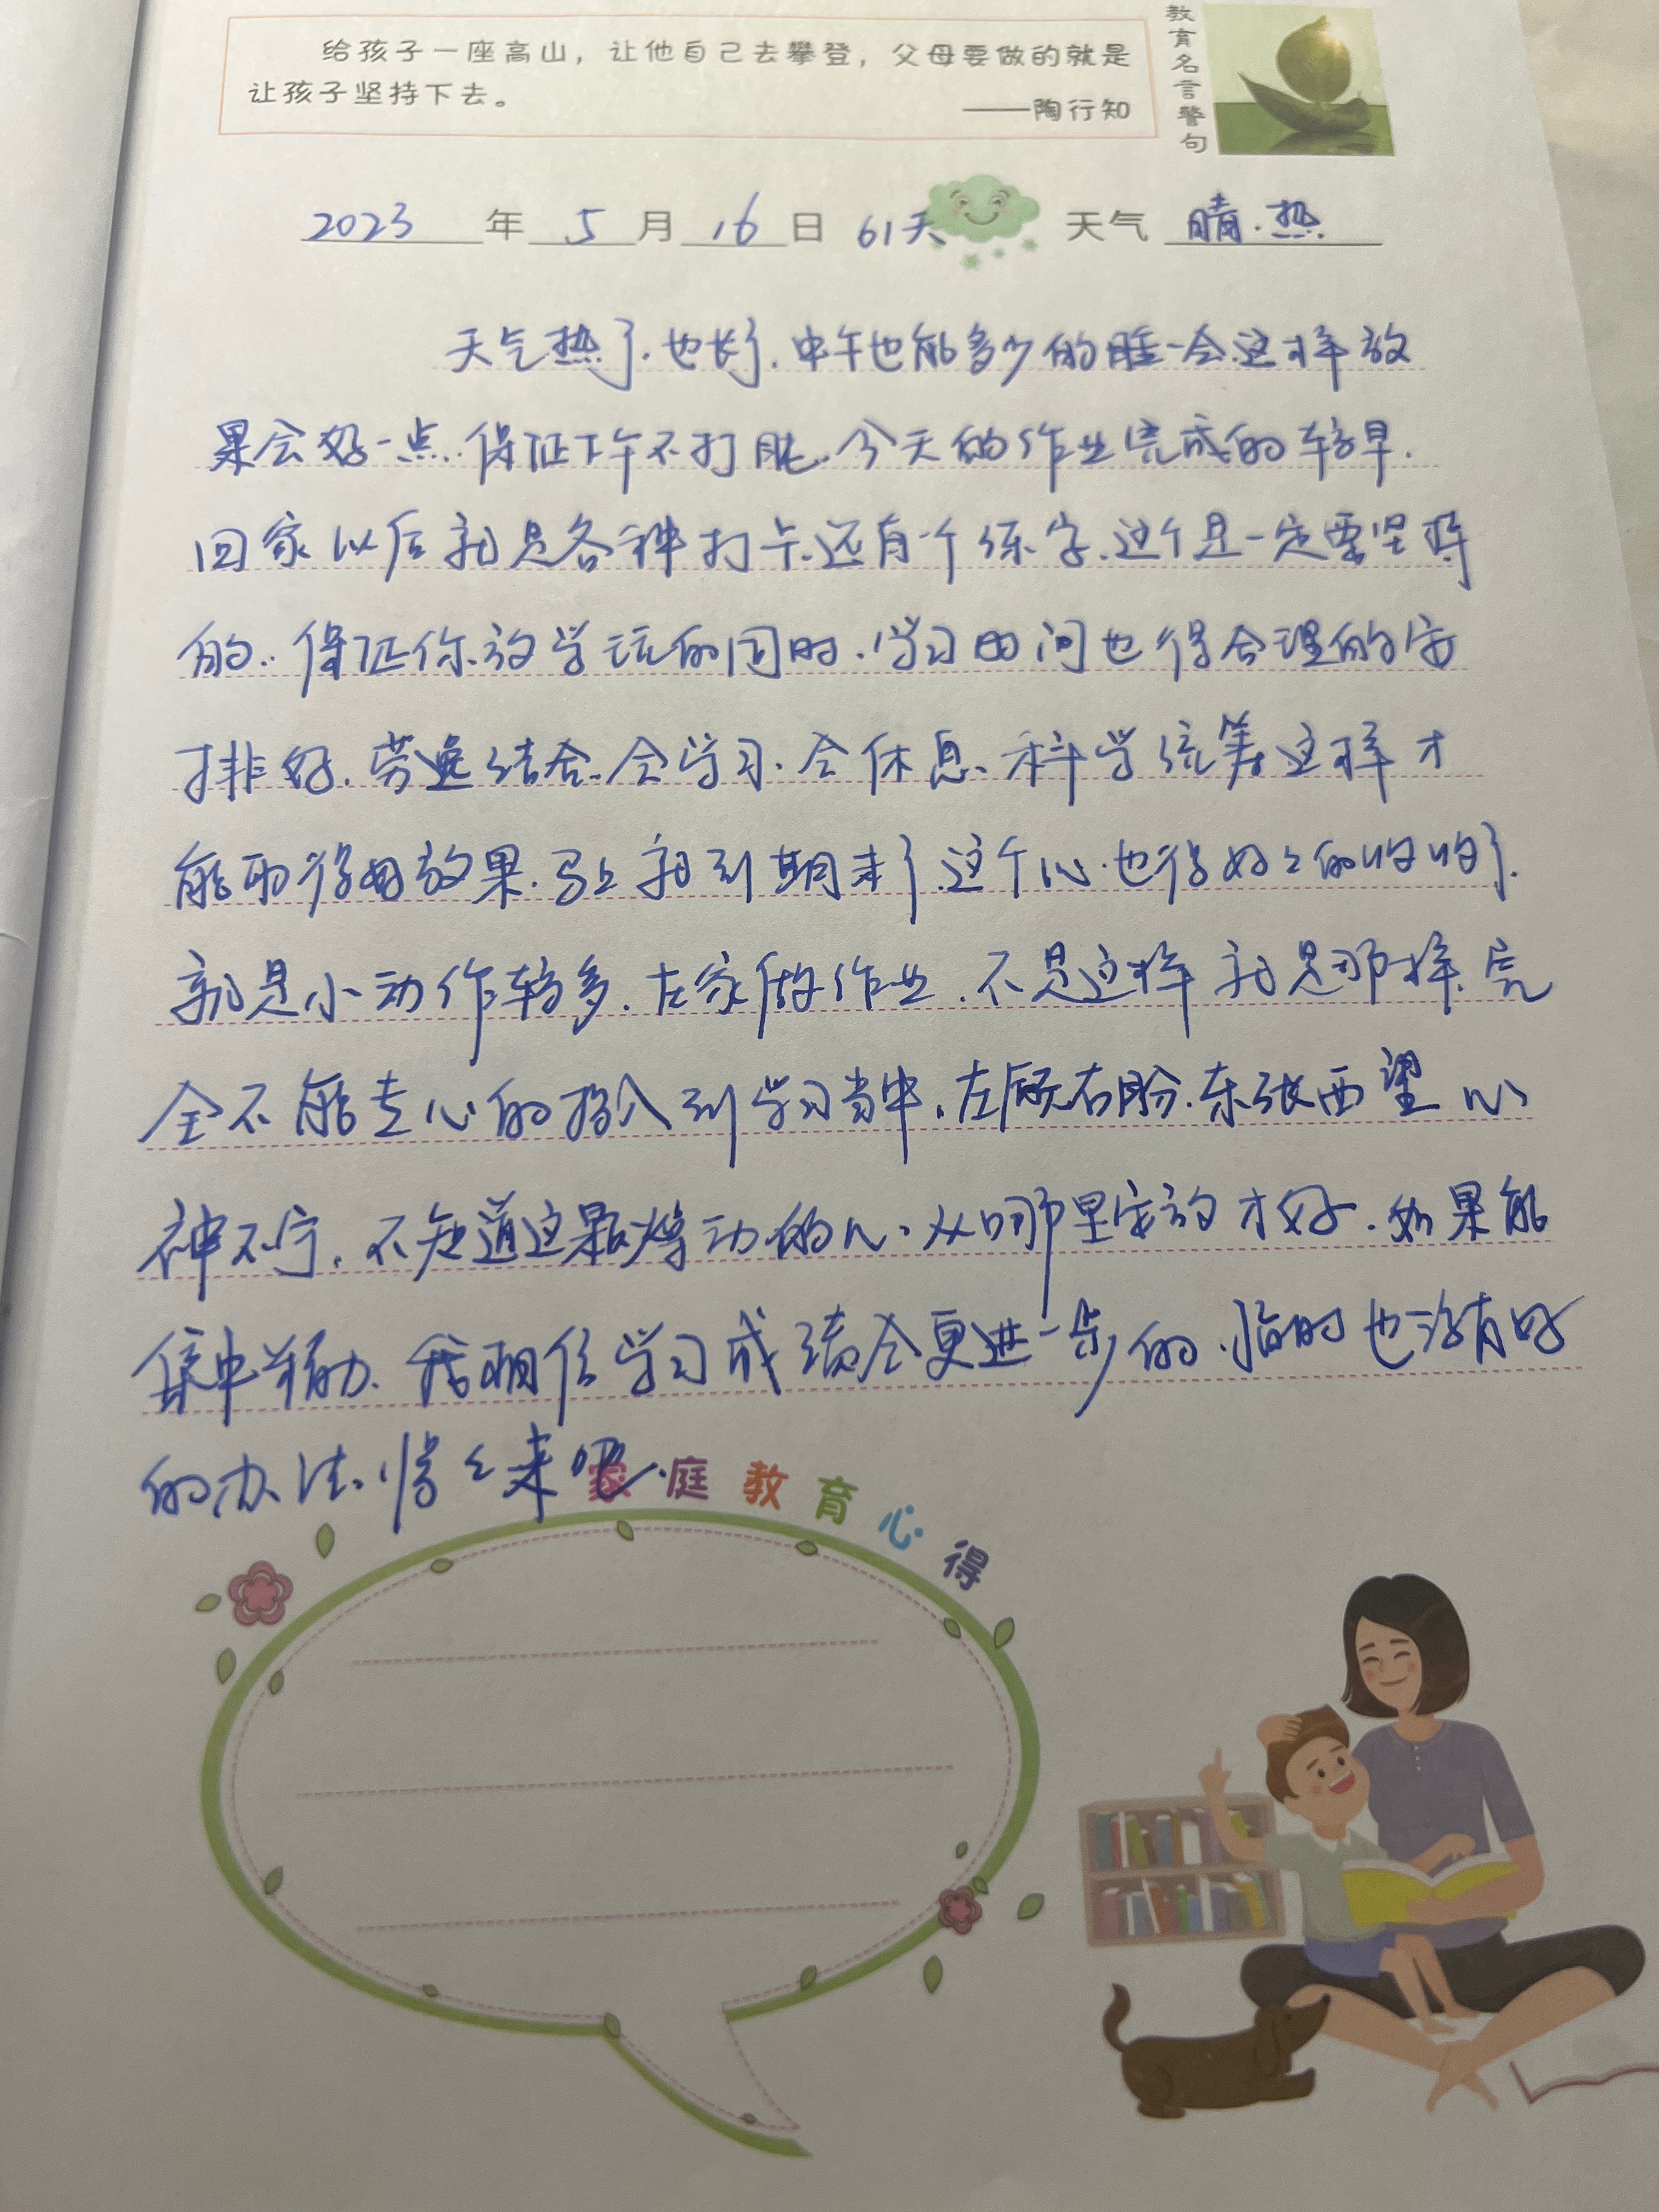 给孩子一座高山，让他自己去攀登，父母要做的就是
让孩子坚持下去。
——陶行知
教育名言警句
2023年5月16日 61天 天气 晴.热.
天气热了.也长了.中午也能多少的睡一会.这样效
果会好一点..保证下午不打盹.今天的作业完成的较早.
回家以后就是各种打卡.还有一个练字.这个是一定要坚持
的..保证你放学玩的同时.学习时间也得合理的安
排好.劳逸结合.会学习.会休息.科学统筹这样才
能取得好效果.马上就到期末了.这个心也得好好的收收了.
就是小动作较多.在家做作业.不是这样就是那样.完
全不能专心的投入到学习当中.左顾右盼.东张西望心
神不宁.不知道这颗躁动的心.从哪里安放才好.如果能
集中精力.我相信学习成绩会更进一步的.临时也没有好
的办法.慢慢来吧.
家庭教育心得